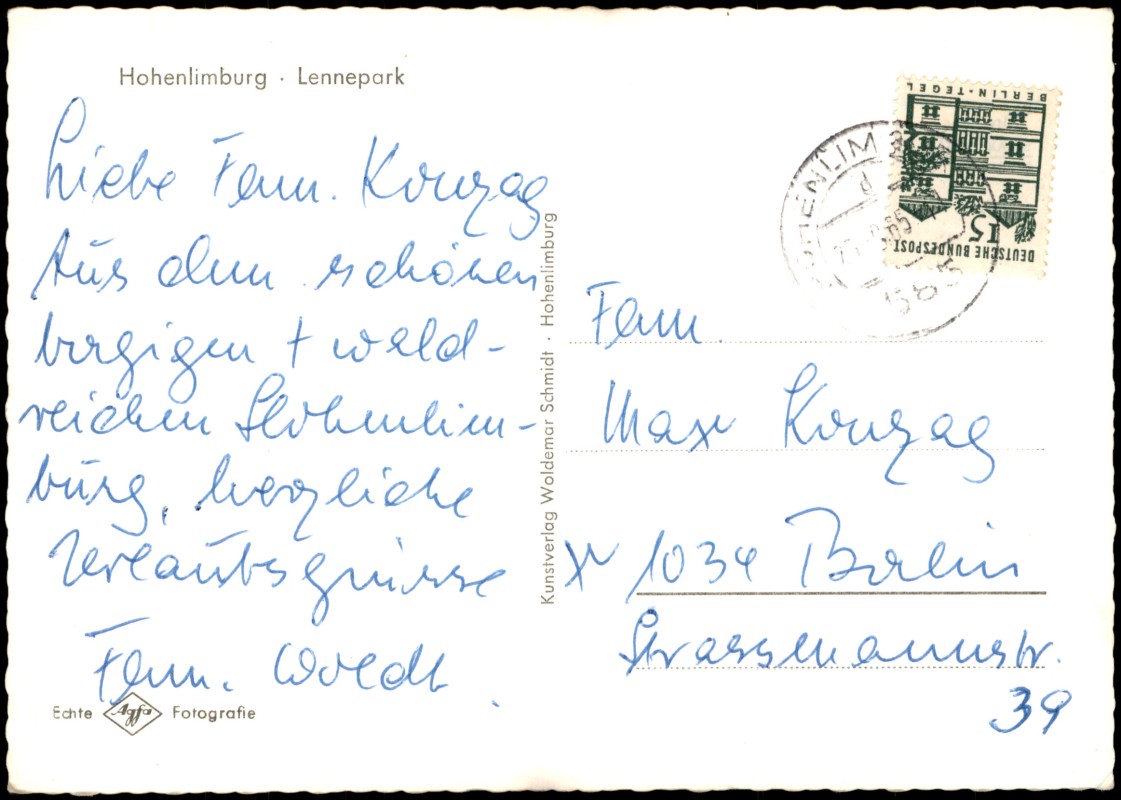 Hohenlimburg · Lennepark
Liebe Fam. Konzag
Aus dem schönen
bergigen + wald-
reichen Hohenlim-
burg, herzliche
Urlaubsgrüsse
Fam.
Echte Agfa Fotografie
Kunstverlag Woldemar Schmidt · Hohenlimburg
BERLIN-TEGEL
15
DEUTSCHE BUNDESPOST
HOHENLIMB
d
65
585
Fam.
Max Konzag
X 1034 Berlin
Strassmannstr.
39